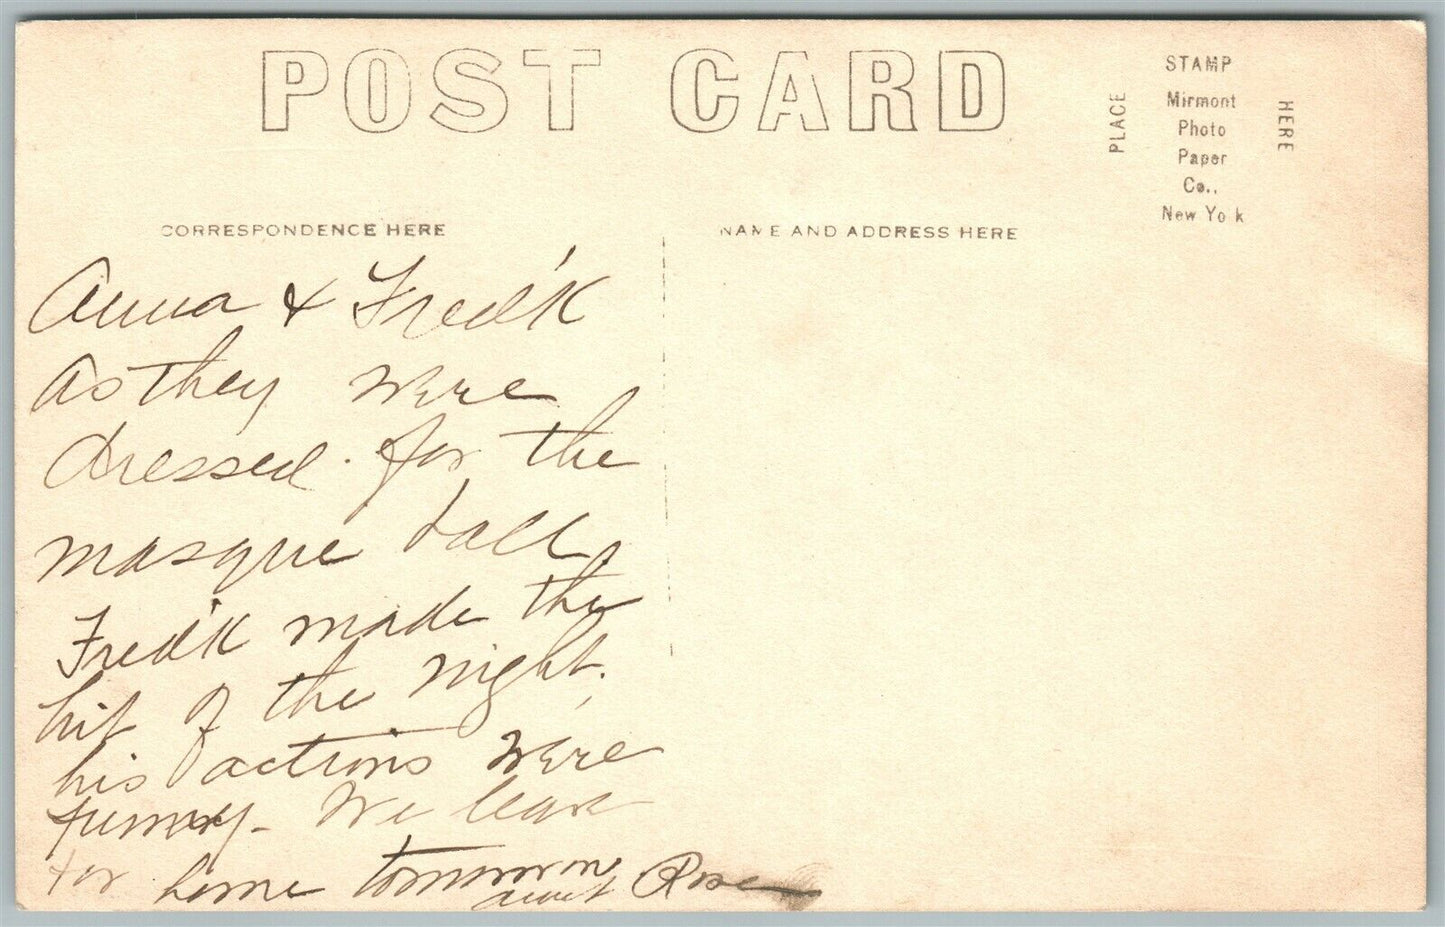 POST CARD
STAMP
PLACE
Mirmont
Photo
Paper
Co.,
New Yo k
HERE
CORRESPONDENCE HERE
NAME AND ADDRESS HERE
Anna & Fred'k
As they were
dressed for the
masque ball.
Fred'k made the
hit of the night.
his actions were
funny - We leave
for home tomorrow
aunt Rose